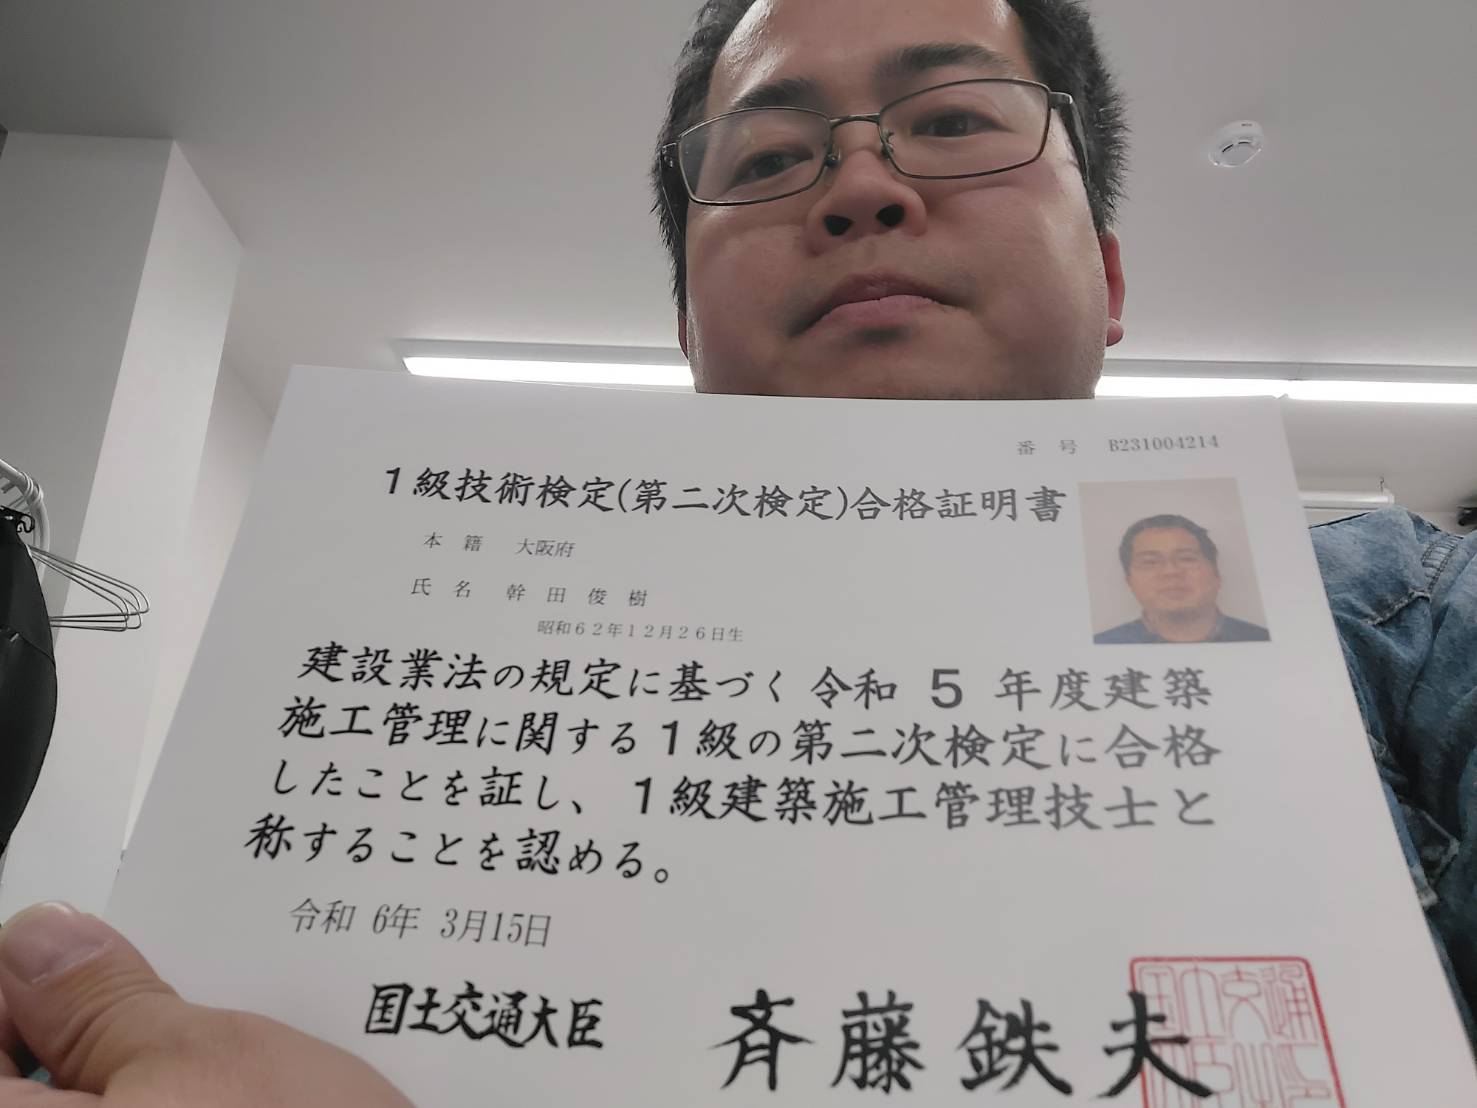 番 号 B231004214
1級技術検定(第二次検定)合格証明書
本 籍 大阪府
氏 名 幹 田 俊 樹
昭和62年12月26日生
建設業法の規定に基づく令和 5 年度建築
施工管理に関する1級の第二次検定に合格
したことを証し、1級建築施工管理技士と
称することを認める。
令和 6年 3月15日
国土交通大臣 斉藤鉄夫